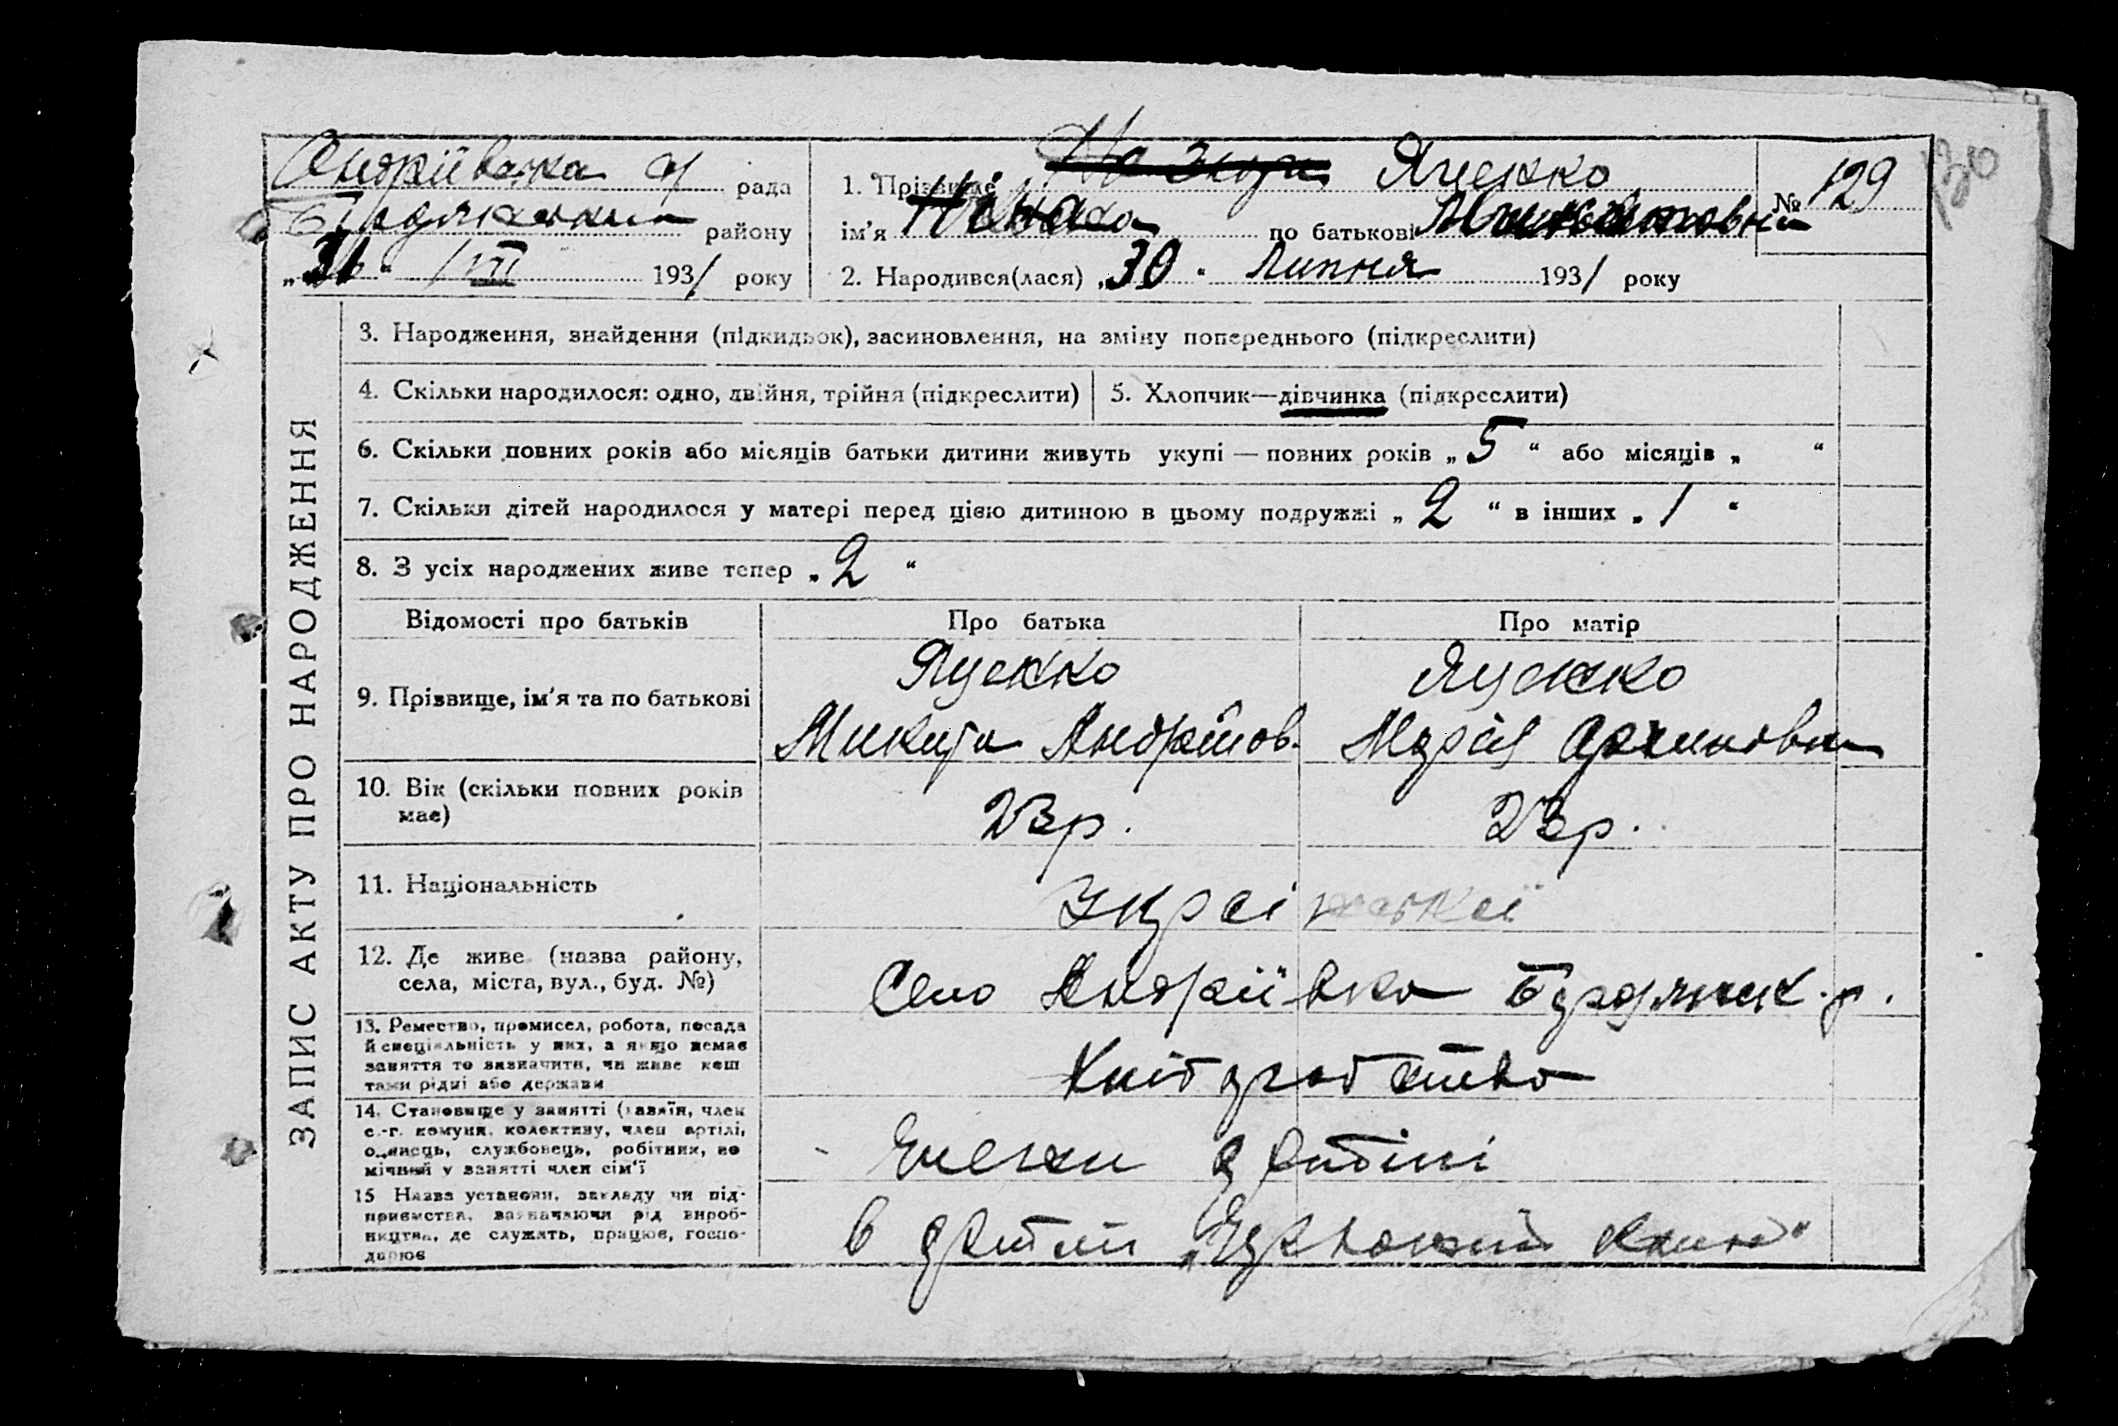 Андріївська с/ рада
1. Прізвище Яценко
№ 129
130
району
ім'я по батькові
„31“ /VII 1931 року
2. Народився(лася) „30“ Липня 1931 року
ЗАПИС АКТУ ПРО НАРОДЖЕННЯ
3. Народження, знайдення (підкидьок), засиновлення, на зміну попереднього (підкреслити)
4. Скільки народилося: одно, двійня, трійня (підкреслити)
5. Хлопчик—дівчинка (підкреслити)
6. Скільки повних років або місяців батьки дитини живуть укупі — повних років „5“ або місяців „ “
7. Скільки дітей народилося у матері перед цією дитиною в цьому подружжі „2“ в інших „1“
8. З усіх народжених живе тепер „2“
Відомості про батьків
Про батька
Про матір
9. Прізвище, ім'я та по батькові
Яценко
Микита Андрійов.
Яценко
Марія Архиповна
10. Вік (скільки повних років
має)
23 р.
23 р.
11. Національність
12. Де живе (назва району,
села, міста, вул., буд. №)
Село Андріївка
13. Ремество, промисел, робота, посада
й спеціяльність у них, а якщо немає
заняття то визначити, чи живе кош
тами рідні або держави
Хліборобство
14. Становище у занятті (хазяїн, член
с.-г. комуни, колективу, член артілі,
одинець, службовець, робітник, по
мічний у занятті член сім'ї
Члени артілі
15 Назва установи, закладу чи під-
приємства, зазначаючи рід вироб-
ництва, де служить, працює, госпо-
дарює
в артілі